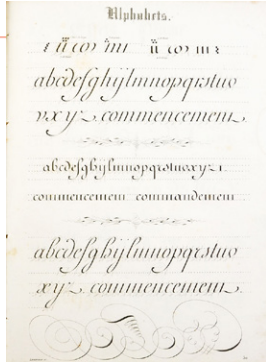 Alphabets.
abcdefghijlmnopqrstuv
vxyz commencement.
abcdefghijlmnopqrstuvxyz
commencement commandement
abcdefghijlmnopqrstuv
xyz commencement.